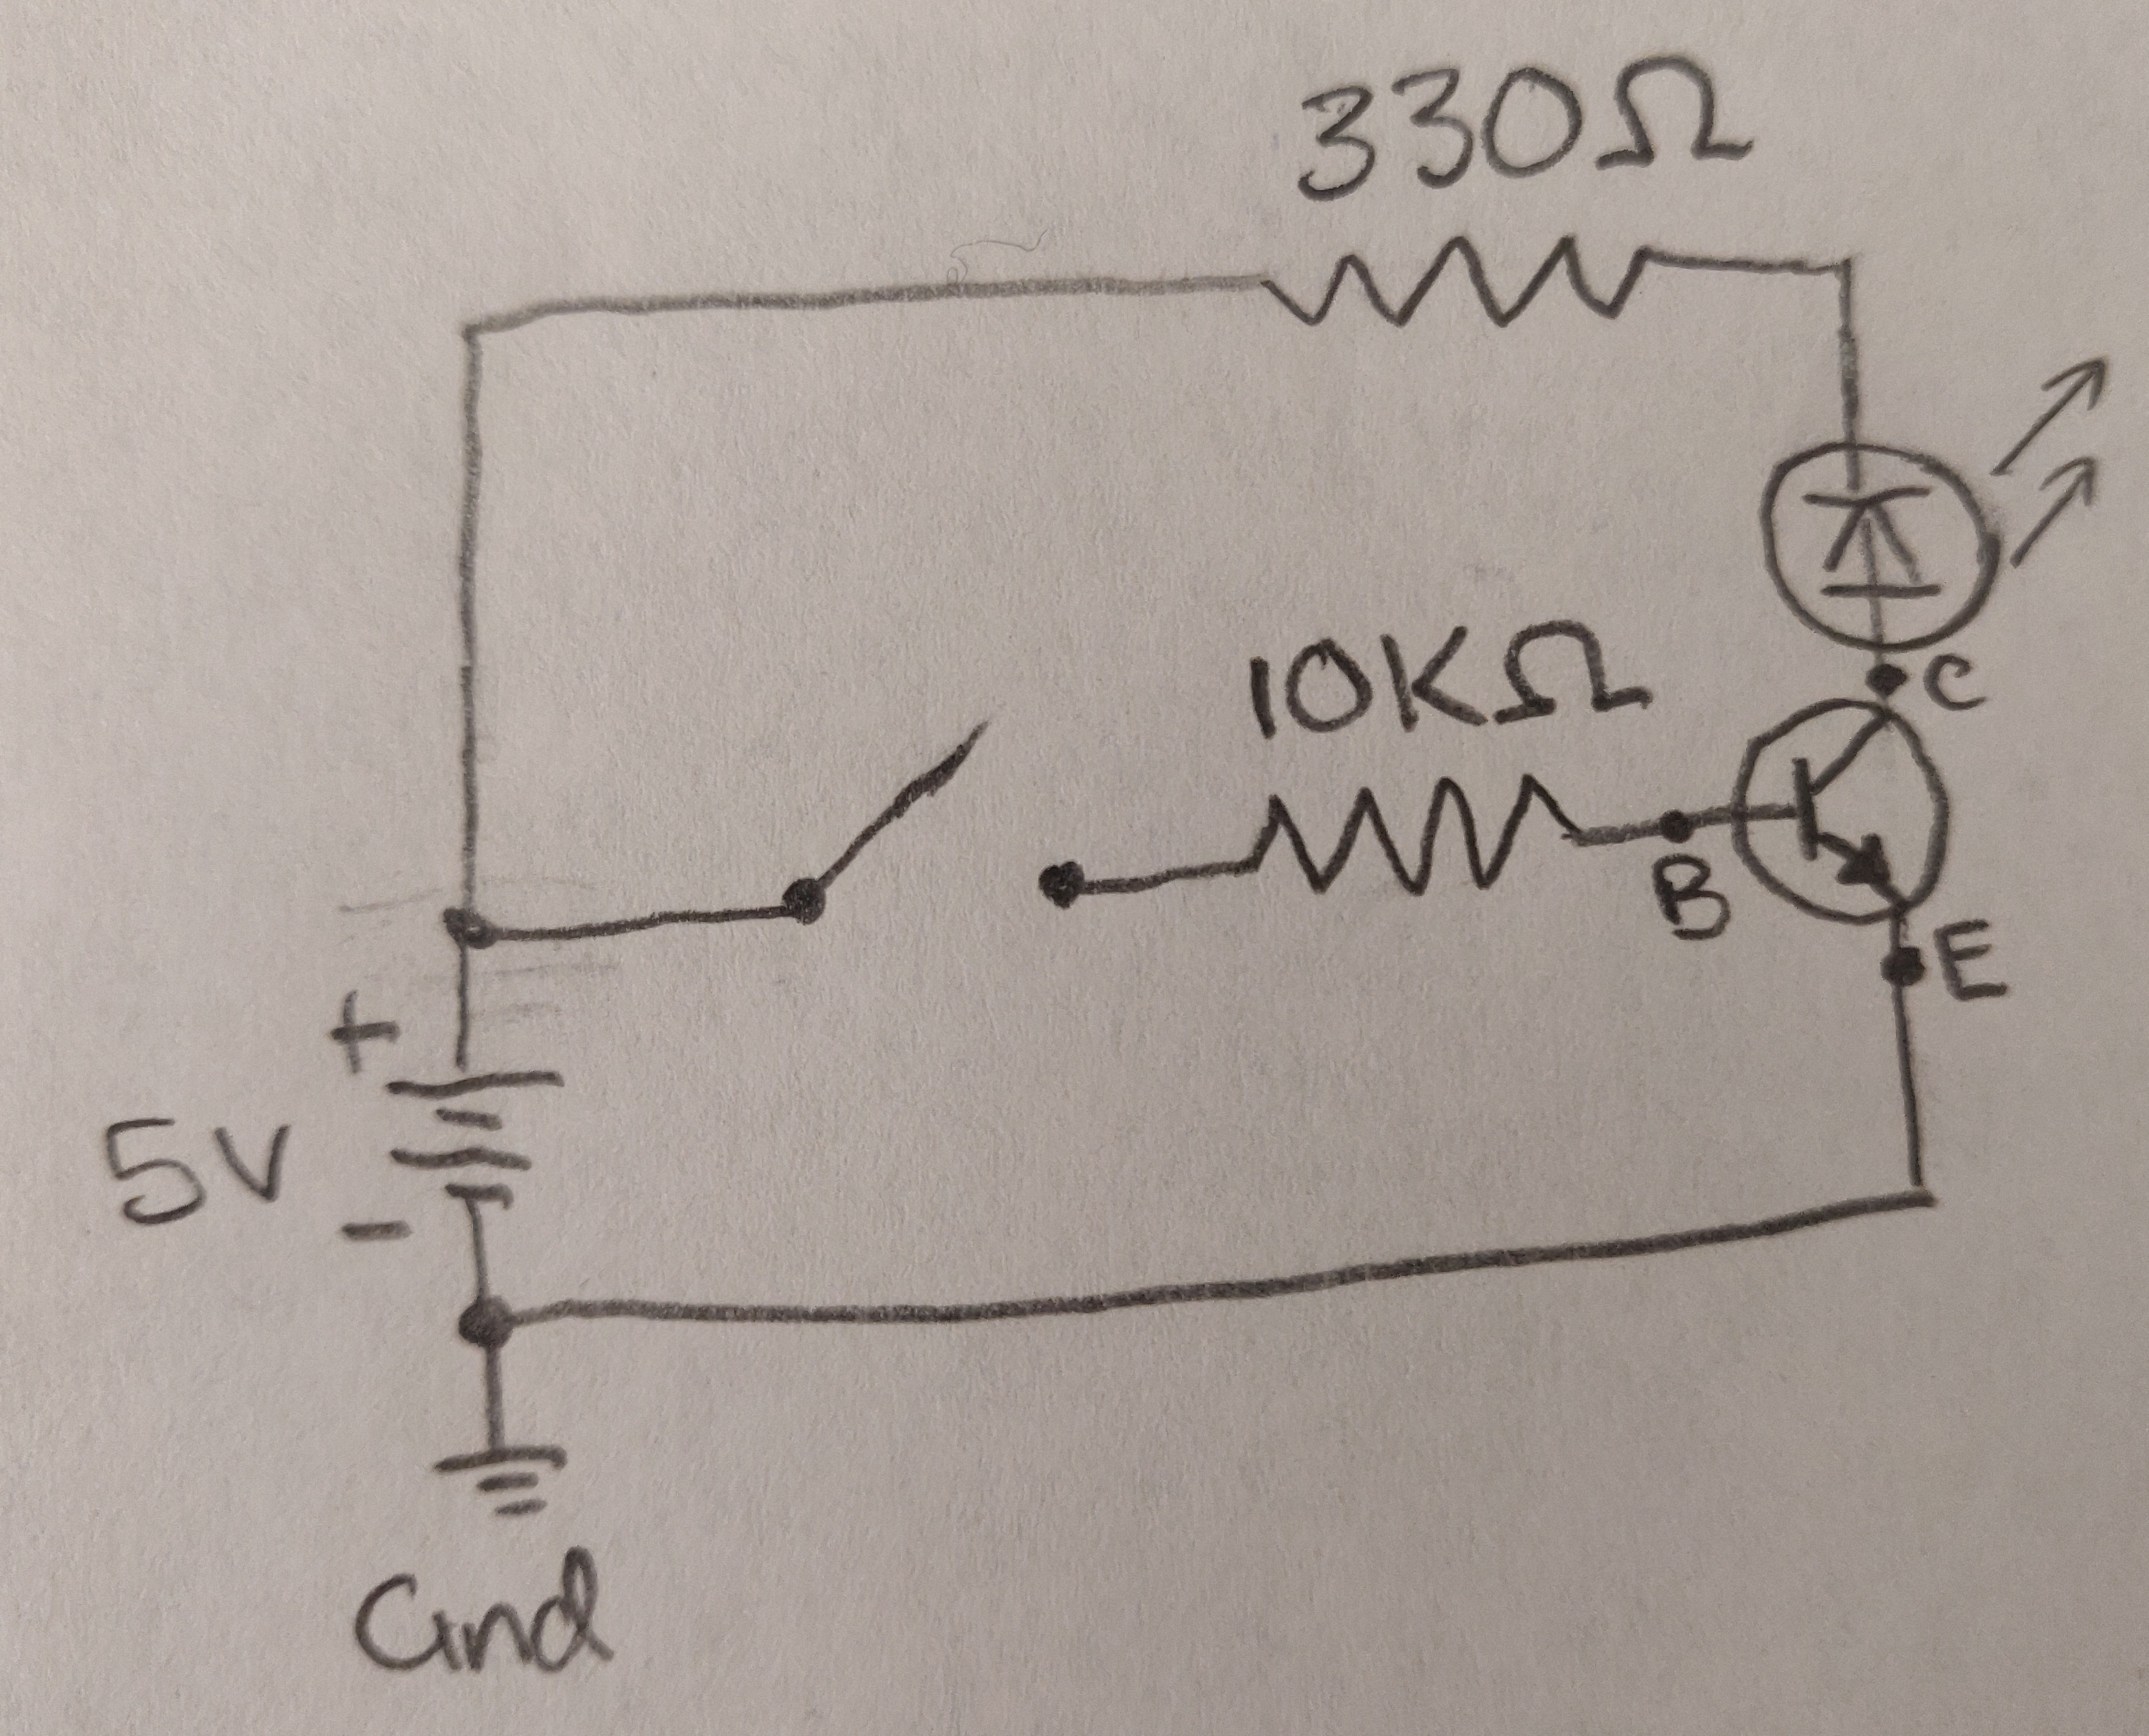 330Ω
10KΩ
C
B
E
+
5V
-
Gnd